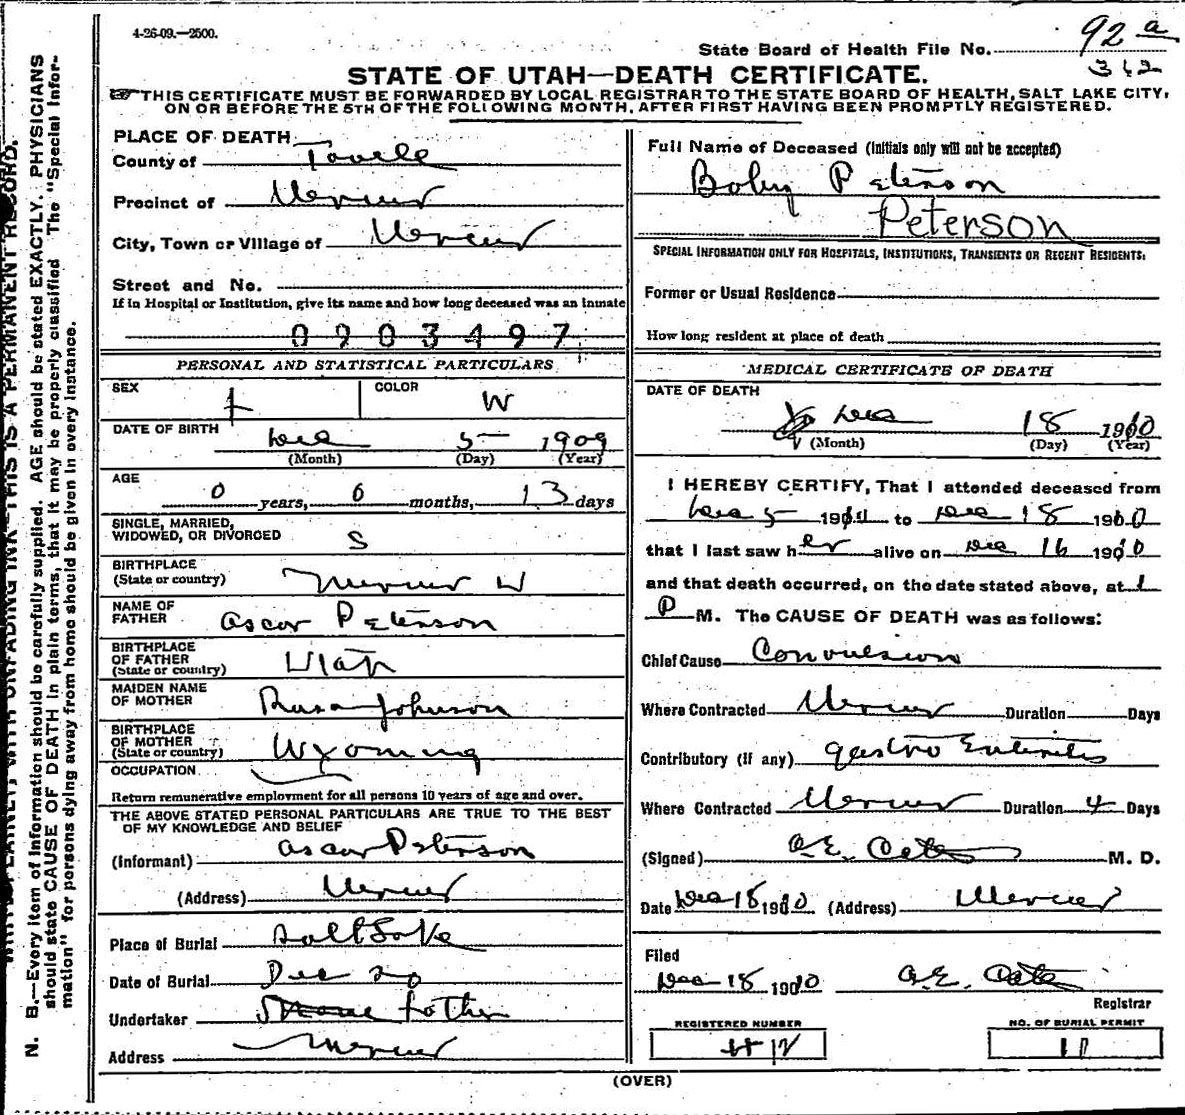 4-26-09.—2500.
State Board of Health File No. 92 a
342
STATE OF UTAH—DEATH CERTIFICATE.
THIS CERTIFICATE MUST BE FORWARDED BY LOCAL REGISTRAR TO THE STATE BOARD OF HEALTH, SALT LAKE CITY,
ON OR BEFORE THE 5TH OF THE FOLLOWING MONTH, AFTER FIRST HAVING BEEN PROMPTLY REGISTERED.
PLACE OF DEATH
County of Tooele
Precinct of Mercur
City, Town or Village of Mercur
Street and No.
If in Hospital or Institution, give its name and how long deceased was an inmate
0903497
PERSONAL AND STATISTICAL PARTICULARS
SEX f COLOR W
DATE OF BIRTH Dec 5 1909
(Month) (Day) (Year)
AGE
0 years, 6 months, 13 days
SINGLE, MARRIED,
WIDOWED, OR DIVORCED S
BIRTHPLACE
(State or country) Mercur U
NAME OF
FATHER Oscar Peterson
BIRTHPLACE
OF FATHER
(State or country) Utah
MAIDEN NAME
OF MOTHER Rosa Johnson
BIRTHPLACE
OF MOTHER
(State or country) Wyoming
OCCUPATION
Return remunerative employment for all persons 10 years of age and over.
THE ABOVE STATED PERSONAL PARTICULARS ARE TRUE TO THE BEST
OF MY KNOWLEDGE AND BELIEF
(Informant) Oscar Peterson
(Address) Mercur
Place of Burial Salt Lake
Date of Burial Dec 20
Undertaker father
Address Mercur
Full Name of Deceased (Initials only will not be accepted)
Baby Peterson
Peterson
SPECIAL INFORMATION ONLY FOR HOSPITALS, INSTITUTIONS, TRANSIENTS OR RECENT RESIDENTS:
Former or Usual Residence
How long resident at place of death
MEDICAL CERTIFICATE OF DEATH
DATE OF DEATH
Dec 18 1910
(Month) (Day) (Year)
I HEREBY CERTIFY, That I attended deceased from
Dec 5 19 to Dec 18 1910
that I last saw her alive on Dec 16 1910
and that death occurred, on the date stated above, at 1
P M. The CAUSE OF DEATH was as follows:
Chief Cause Convulsion
Where Contracted Mercur Duration Days
Contributory (if any) Gastro Enteritis
Where Contracted Mercur Duration 4 Days
(Signed) M. D.
Date Dec 18 1910 (Address) Mercur
Filed
Dec 18 1910
Registrar
REGISTERED NUMBER NO. OF BURIAL PERMIT
# 12 11
(OVER)
RECORD.
THIS IS A PERMANENT
WITH UNFADING INK
N. B.—Every item of information should be carefully supplied. AGE should be stated EXACTLY. PHYSICIANS
should state CAUSE OF DEATH in plain terms, that it may be properly classified The "Special Infor-
mation" for persons dying away from home should be given in every instance.